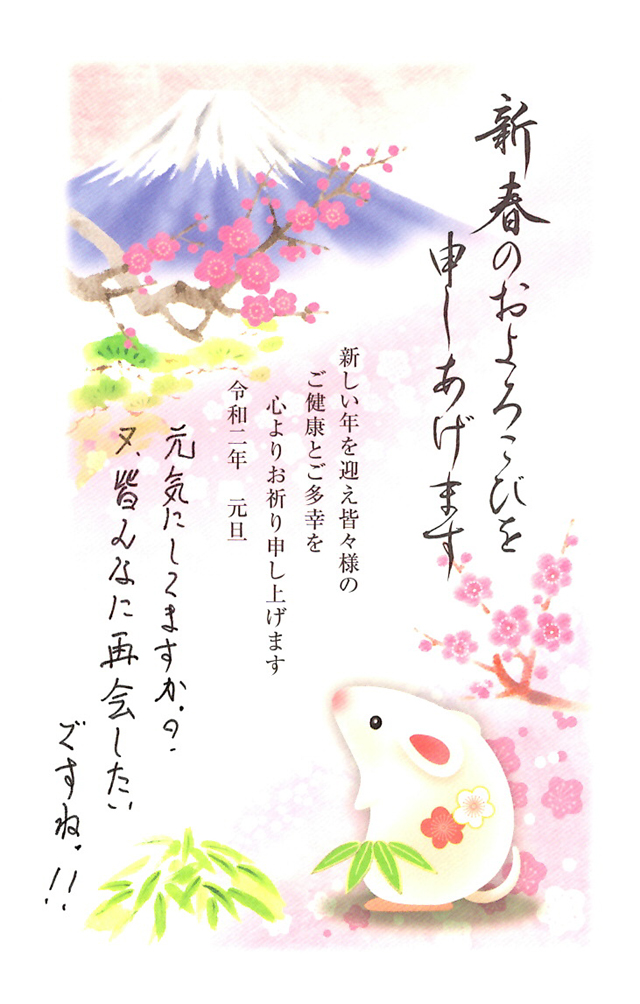 新春のおよろこびを
申しあげます
新しい年を迎え皆々様の
ご健康とご多幸を
心よりお祈り申し上げます
令和二年 元旦
元気にしてますか?
又、皆んなに再会したい
ですね。!!